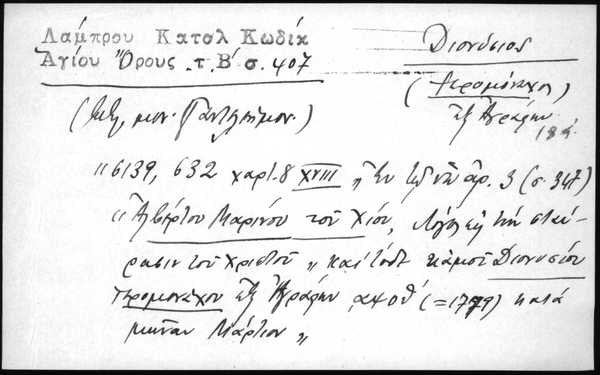 Λάμπρου Κατσλ Κωδίκ
Ἁγίου Ὄρους τ. Β΄ σ. 407
Διονύσιος
(Ἱερομόναχος)
ἐξ Ἀγράφων
(Μον. Παντελεήμον.)
"6139, 632 χαρτ. 8 XVIII „ Ἐν τέλει ἀρ. 3 (σ. 347)
"Ἀλβέρτου Μαρίνου τοῦ Χίου, Λόγος εἰς τὴν σταύ-
ρωσιν τοῦ Χριστοῦ „ καὶ τόδε κἀμοῦ Διονυσίου
Ἱερομονάχου ἐξ Ἀγράφων αψοθ΄ (=1779) κατὰ
μῆναν Μάρτιον „